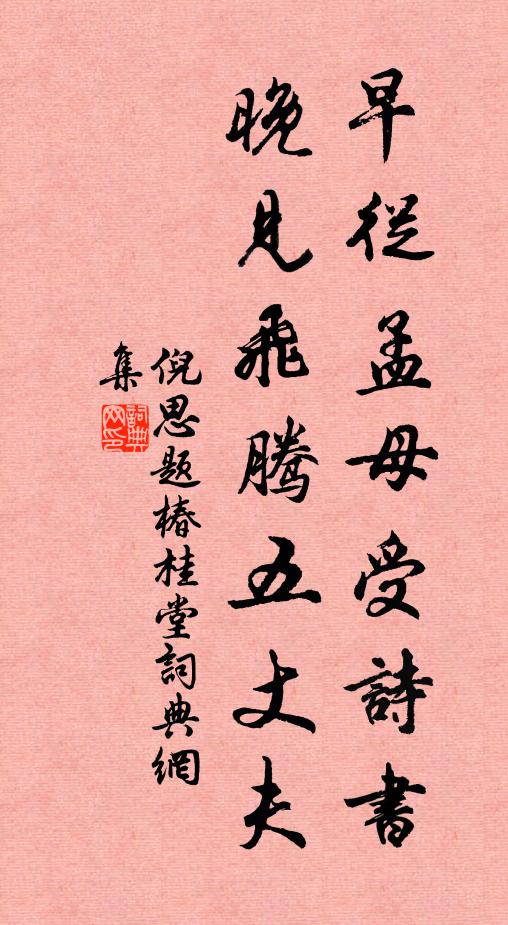 早從孟母受詩書
晚見飛騰五丈夫
倪思題椿桂堂詞典網
集
詞典網印